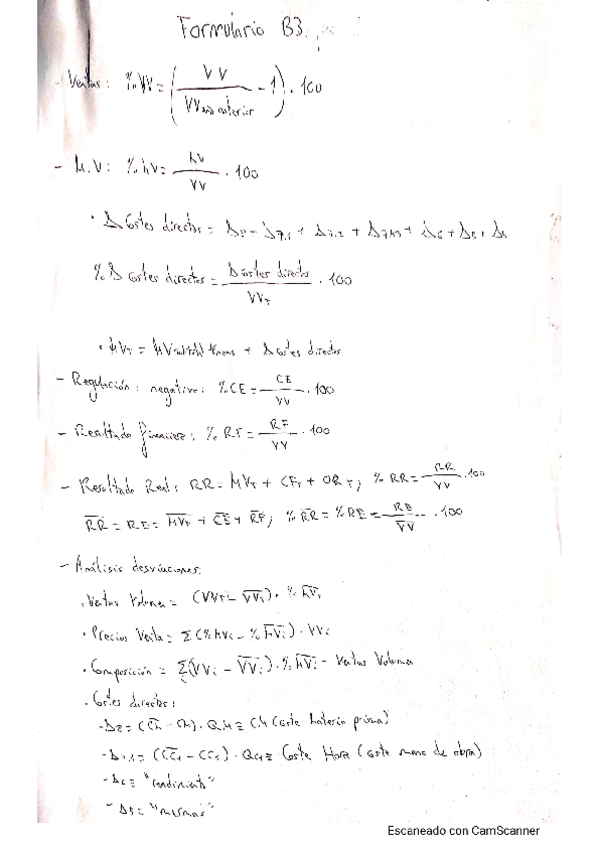 Formulario B3
- Ventas: % VV = ( VV / VV año anterior - 1 ) · 100
- M.V: % MV = MV / VV · 100
· Δ Costes directos = Δ2 - Δ7,1 + Δ7,2 + + Δ6 + Δ5 +
% Δ Costes directos = Δ costes directos / VVT · 100
· MVT = + Δ costes directos
- Regulación: negativo: % CE = CE / VV · 100
- Resultado financiero: % RF = RF / VV · 100
- Resultado Real: RR = MVT + CET + ; % RR = RR / VV · 100
R̅R̅ = RE = M̅V̅T + C̅E̅ + R̅F̅; % R̅R̅ = % RE = RE / V̅V̅ · 100
- Análisis desviaciones:
· Ventas Volumen = (VVT - V̅V̅T) · % M̅V̅T
· Precios Venta = Σ (% MVi - % M̅V̅i) · VVi
· Composición = Σ (VVi - V̅V̅i) · % M̅V̅i - Ventas Volumen
· Costes directos:
- Δ2 = (C̅M̅ - CM) · QM ≡ CM (coste materia prima)
- = · ≡ Coste Hora (coste mano de obra)
- Δ6 ≡ "rendimiento"
- Δ5 ≡ "mermas"
Escaneado con CamScanner